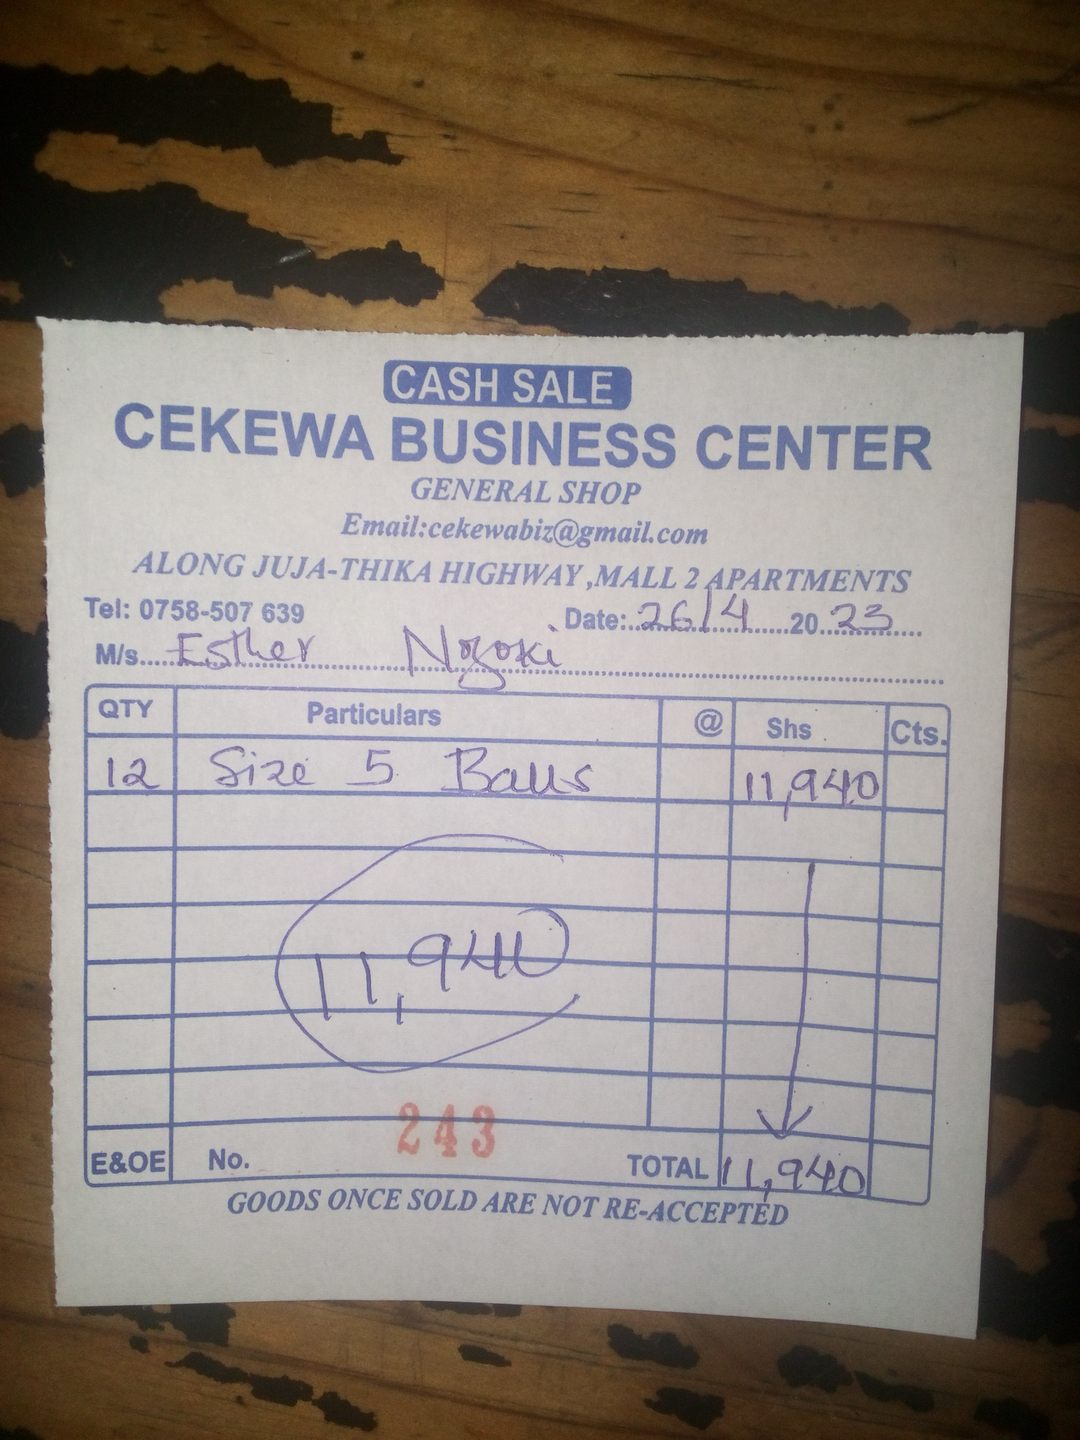 CASH SALE
CEKEWA BUSINESS CENTER
GENERAL SHOP
Email:cekewabiz@gmail.com
ALONG JUJA-THIKA HIGHWAY ,MALL 2 APARTMENTS
Tel: 0758-507 639 Date:..26/4..20..23..
M/s....Esther Ngoki
QTY Particulars @ Shs . Cts.
12 Size 5 Balls 11,940
11,940
243
E&OE No. TOTAL 11,940
GOODS ONCE SOLD ARE NOT RE-ACCEPTED